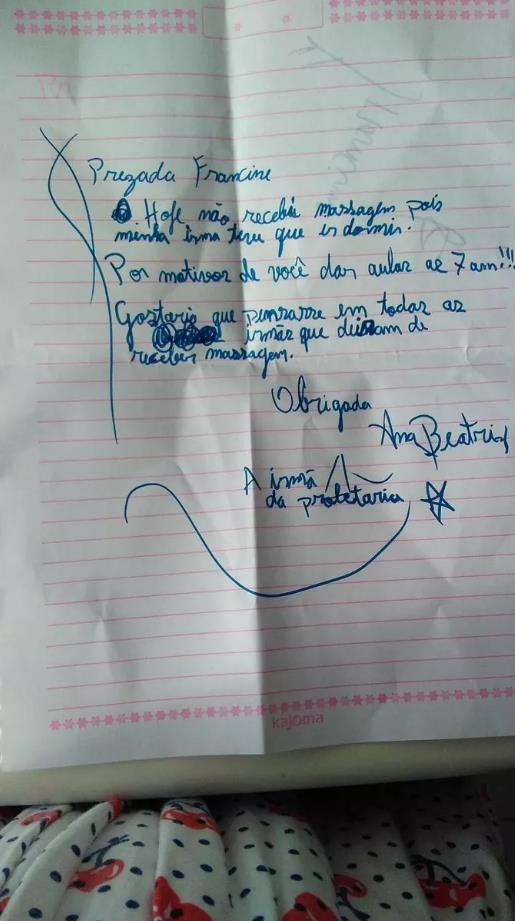 Prezada Francine
Hoje não recebi massagem pois
minha irma teve que ir dormir.
Por motivos de você dar aulas as 7 am!!!
Gostaria que pensasse em todas as
irmãs que deixam de
receber massagem.
Obrigada
Ana Beatriz
A irmã
da proletaria
kajoma